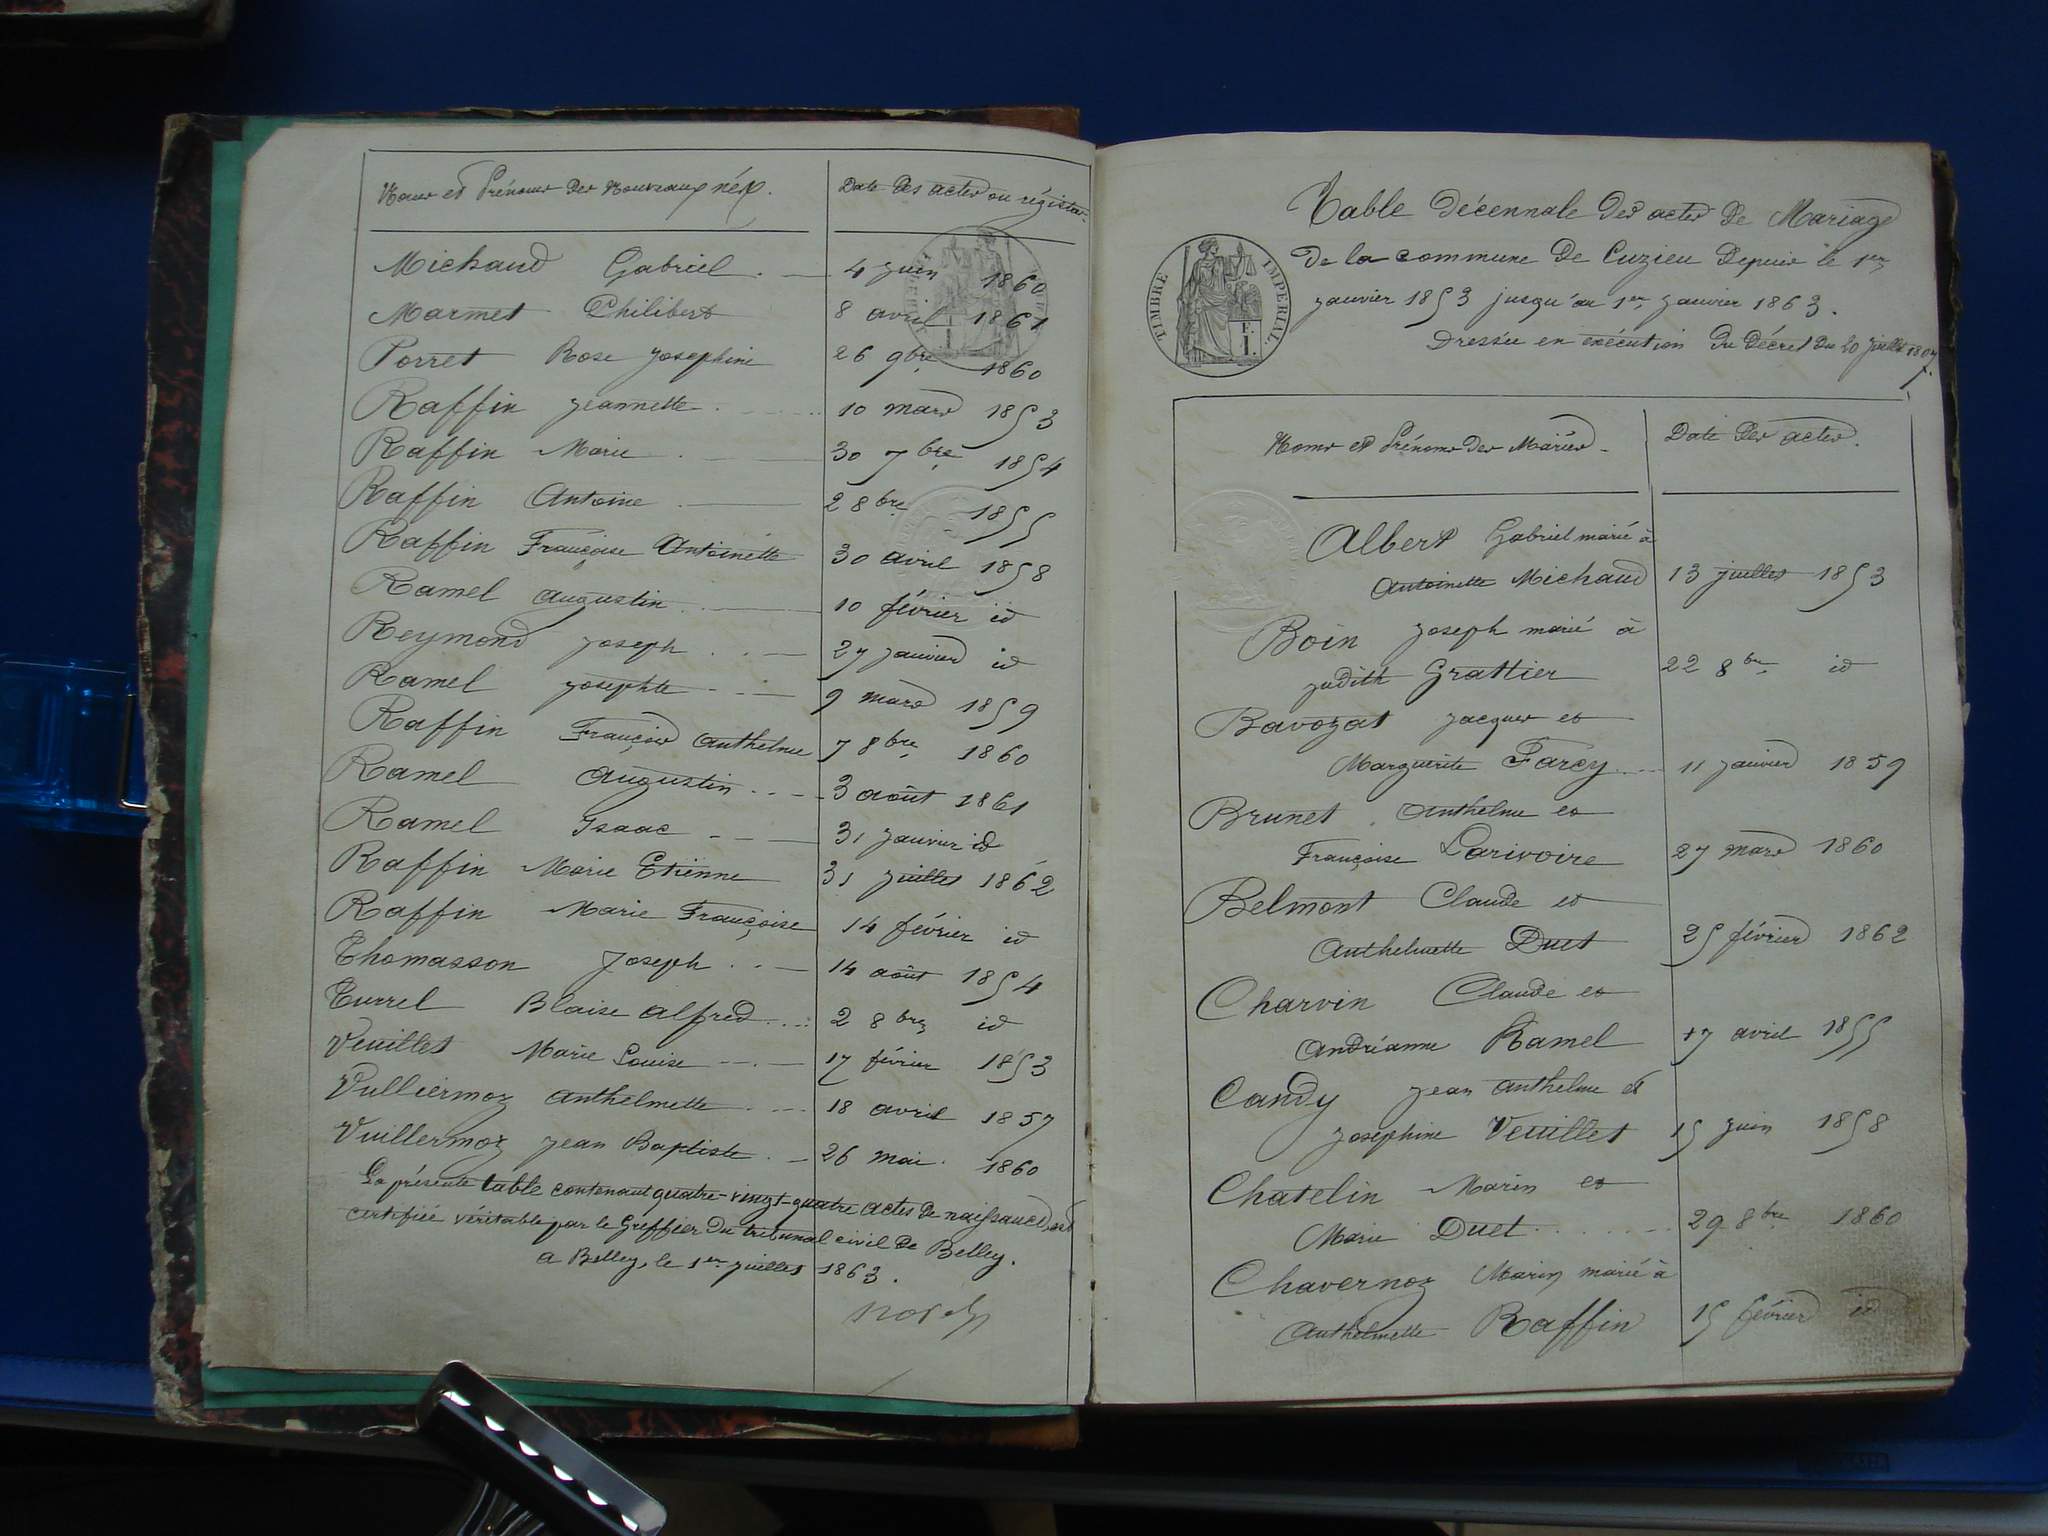 Noms et Prénoms des Nouveaux nés.
Date des actes ou régistre
Michaud Gabriel 4 juin 1860
Marmet Philibert 8 avril 1861
Porret Rose Josephine 26 9bre 1860
Raffin Jeannette 10 mars 1853
Raffin Marie 30 7bre 1854
Raffin Antoine 2 8bre 1855
Raffin Françoise Antoinette 30 avril 1858
Ramel Augustin 10 février id
Reymond Joseph 27 janvier id
Ramel Josephte 9 mars 1859
Raffin François Anthelme 7 8bre 1860
Ramel Augustin 3 août 1861
Ramel Isaac 31 janvier id
Raffin Marie Etienne 31 juillet 1862
Raffin Marie Françoise 14 février id
Thomasson Joseph 14 août 1854
Turrel Blaise Alfred 2 8bre id
Veuillet Marie Louise 17 février 1853
Vulliermoz Anthelmette 18 avril 1857
Vuillermoz Jean Baptiste 26 mai 1860
La présente table contenant quatre-vingt-quatre actes de naissance est
certifiée véritable par le Greffier du tribunal civil de Belley.
a Belley, le 1er juillet 1863.
Table décennale des actes de Mariage
de la commune de Cuzieu depuis le 1er
janvier 1853 jusqu'au 1er janvier 1863.
Dressée en exécution du décret du 20 juillet 1807.
TIMBRE IMPERIAL
Noms et Prénoms des Mariés
Date des actes.
Albert Gabriel marié à
Antoinette Michaud 13 juillet 1853
Boin Joseph marié à
Judith Grattier 22 8bre id
Bavozat Jacques et
Marguerite Farcy 11 janvier 1859
Brunet Anthelme et
Françoise Larivoire 27 mars 1860
Belmont Claude et
Anthelmette Duet 25 février 1862
Charvin Claude et
Andréanne Ramel 17 avril 1855
Candy Jean Anthelme et
Josephine Veuillet 15 juin 1858
Chatelin Marin et
Marie Duet 29 8bre 1860
Chavernoz Marin marié à
Anthelmette Raffin 15 février id